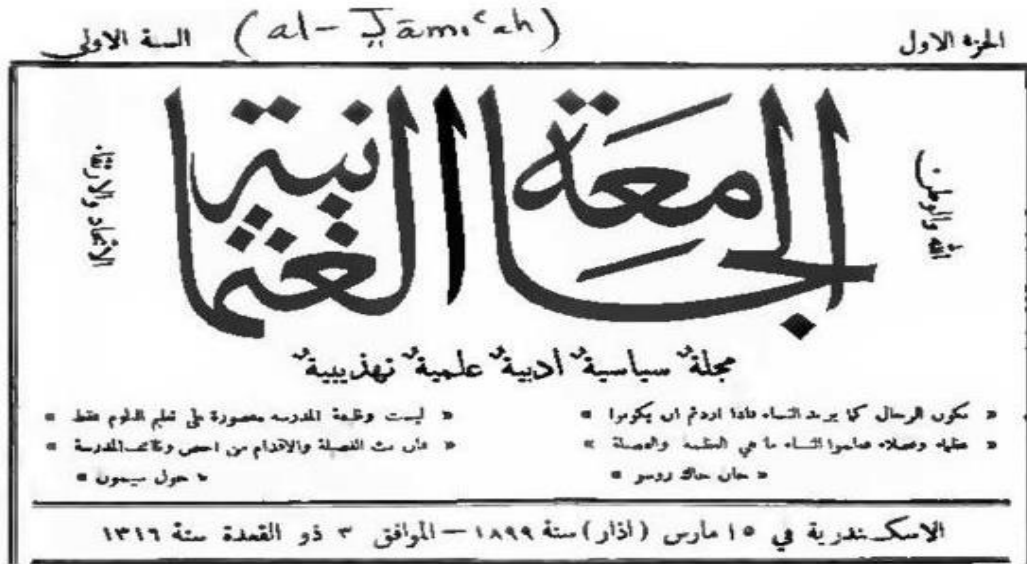 الجزء الاول (al-Jāmiʿah) السنة الاولى
الله والوطن
الجامعة العثمانية
الاتحاد والارتقاء
مجلةٌ سياسيةٌ أدبيةٌ علميةٌ تهذيبيةٌ
« يكون الرجال كما يريد النساء فاذا اردتم ان يكونوا »
« عظماء وفضلاء فعلموا النساء ما هي العظمة والفضيلة »
« جان جاك روسو »
« ليست وظيفة المدرسة مقصورة على تعليم العلوم فقط »
« فان بث الفضيلة والاقدام من اخص وظائف المدرسة »
« جول سيمون »
الاسكندرية في ١٥ مارس (اذار) سنة ١٨٩٩ — الموافق ٣ ذو القعدة سنة ١٣١٦